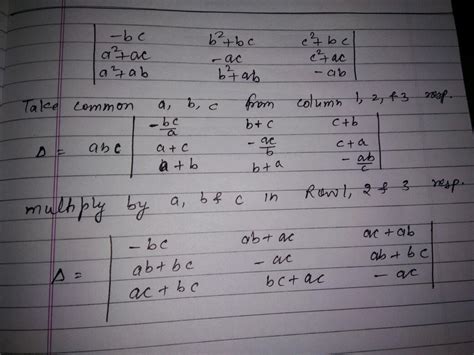 | -bc b²+bc c²+bc |
| a²+ac -ac c²+ac |
| a²+ab b²+ab -ab |
Take common a, b, c from column 1, 2, & 3 resp.
Δ = abc | -bc/a b+c c+b |
| a+c -ac/b c+a |
| a+b b+a -ab/c |
multiply by a, b & c in Row 1, 2 & 3 resp.
Δ = | -bc ab+ac ac+ab |
| ab+bc -ac ab+bc |
| ac+bc bc+ac -ac |